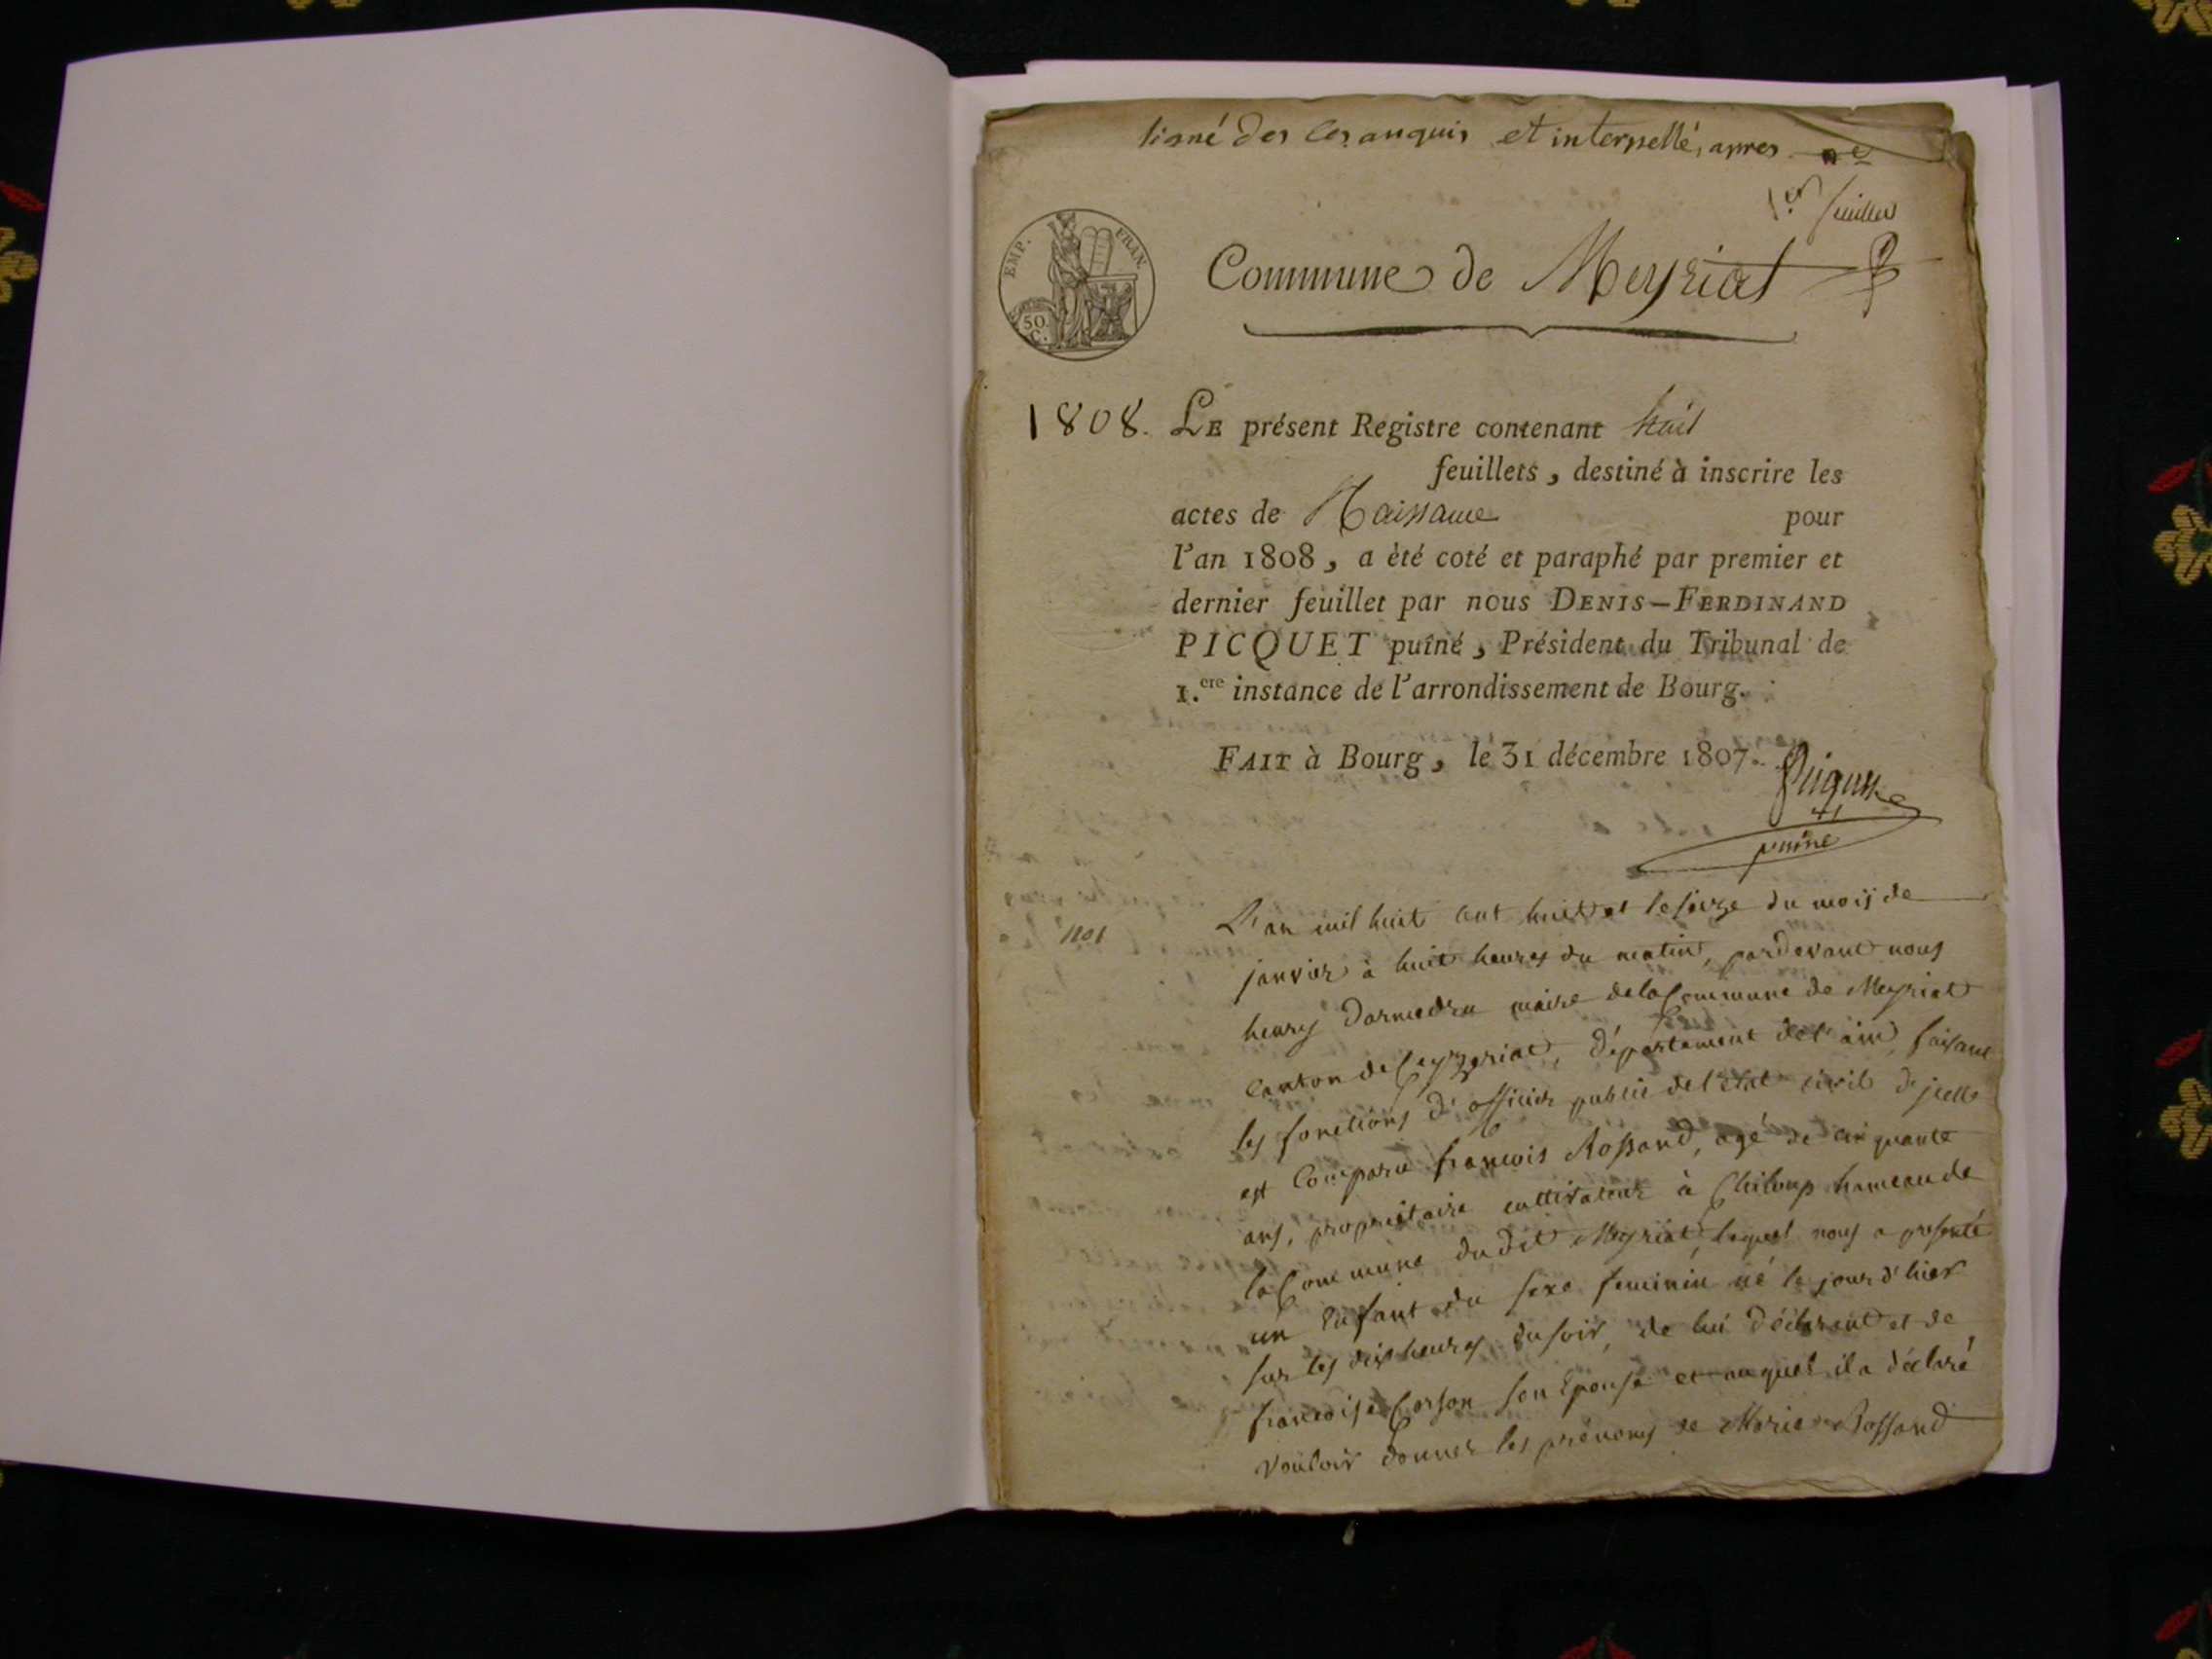 signé des ces anquis et interpellé, apres
1er feuillet
EMP. FRAN.
50 C.
Commune de Meyriat
1808. LE présent Registre contenant huit
feuillets, destiné à inscrire les
actes de Naissance pour
l'an 1808, a èté coté et paraphé par premier et
dernier feuillet par nous DENIS-FERDINAND
PICQUET puîné, Président du Tribunal de
1.ere instance de l'arrondissement de Bourg.
FAIT à Bourg, le 31 décembre 1807.
Picquet
puiné
L'an mil huit cent huit et le seize du mois de
janvier à huit heures du matin, pardevant nous
henry Darmedru maire de la Commune de Meyriat
Canton de Ceyzeriat, département de l'ain, faisant
les fonctions d'officier public de l'état civil d'jcelle
est Comparu françois Rossand, agé de cinquante
ans, propriétaire cultivateur à Chiloup hameau de
la Commune dudit Meyriat, lequel nous a presenté
un Enfant du sexe feminin né le jour d'hier
sur les dix heures du soir, de lui déclarant et de
françoise Corson son Epouse et auquel il a déclaré
vouloir donner les prénoms de Marie Rossand